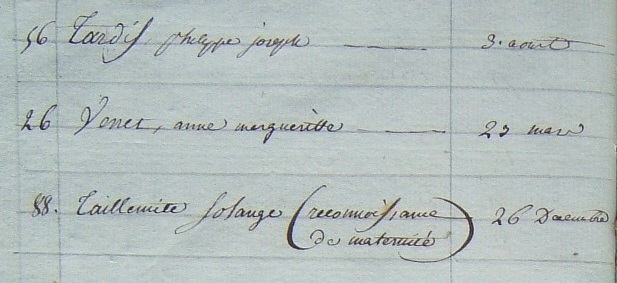 56 Tardif, philippe joseph — 3. aout
26 Venet, anne margueritte — 23 mars
88. Taillemitte Solange (reconnoissance de maternité) 26 Decembre